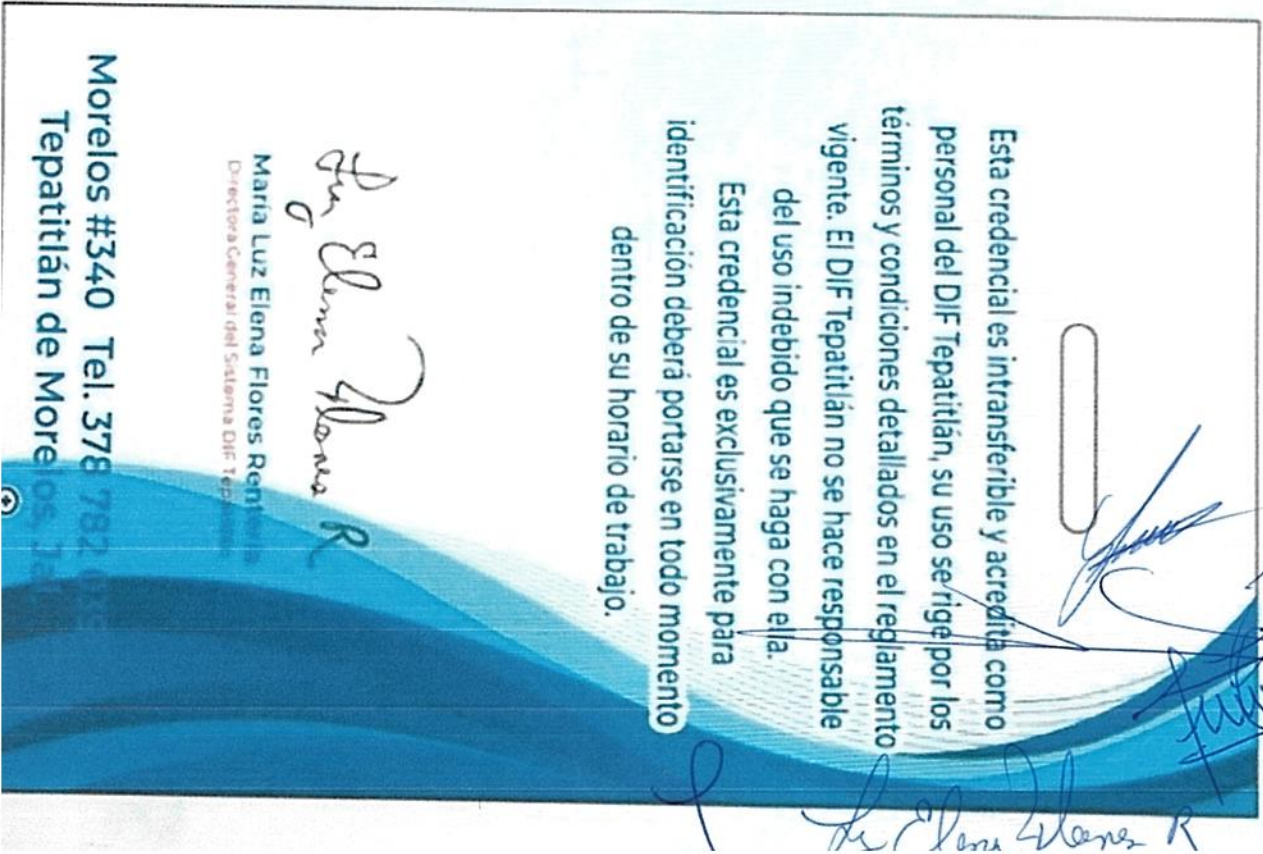 Esta credencial es intransferible y acredita como
personal del DIF Tepatitlán, su uso se rige por los
términos y condiciones detallados en el reglamento
vigente. El DIF Tepatitlán no se hace responsable
del uso indebido que se haga con ella.
Esta credencial es exclusivamente para
identificación deberá portarse en todo momento
dentro de su horario de trabajo.
Luz Elena Flores R
María Luz Elena Flores Rentería
Directora General del Sistema DIF Tepatitlán
Morelos #340 Tel. 378 782
Tepatitlán de Morelos, Ja
Luz Elena Flores R